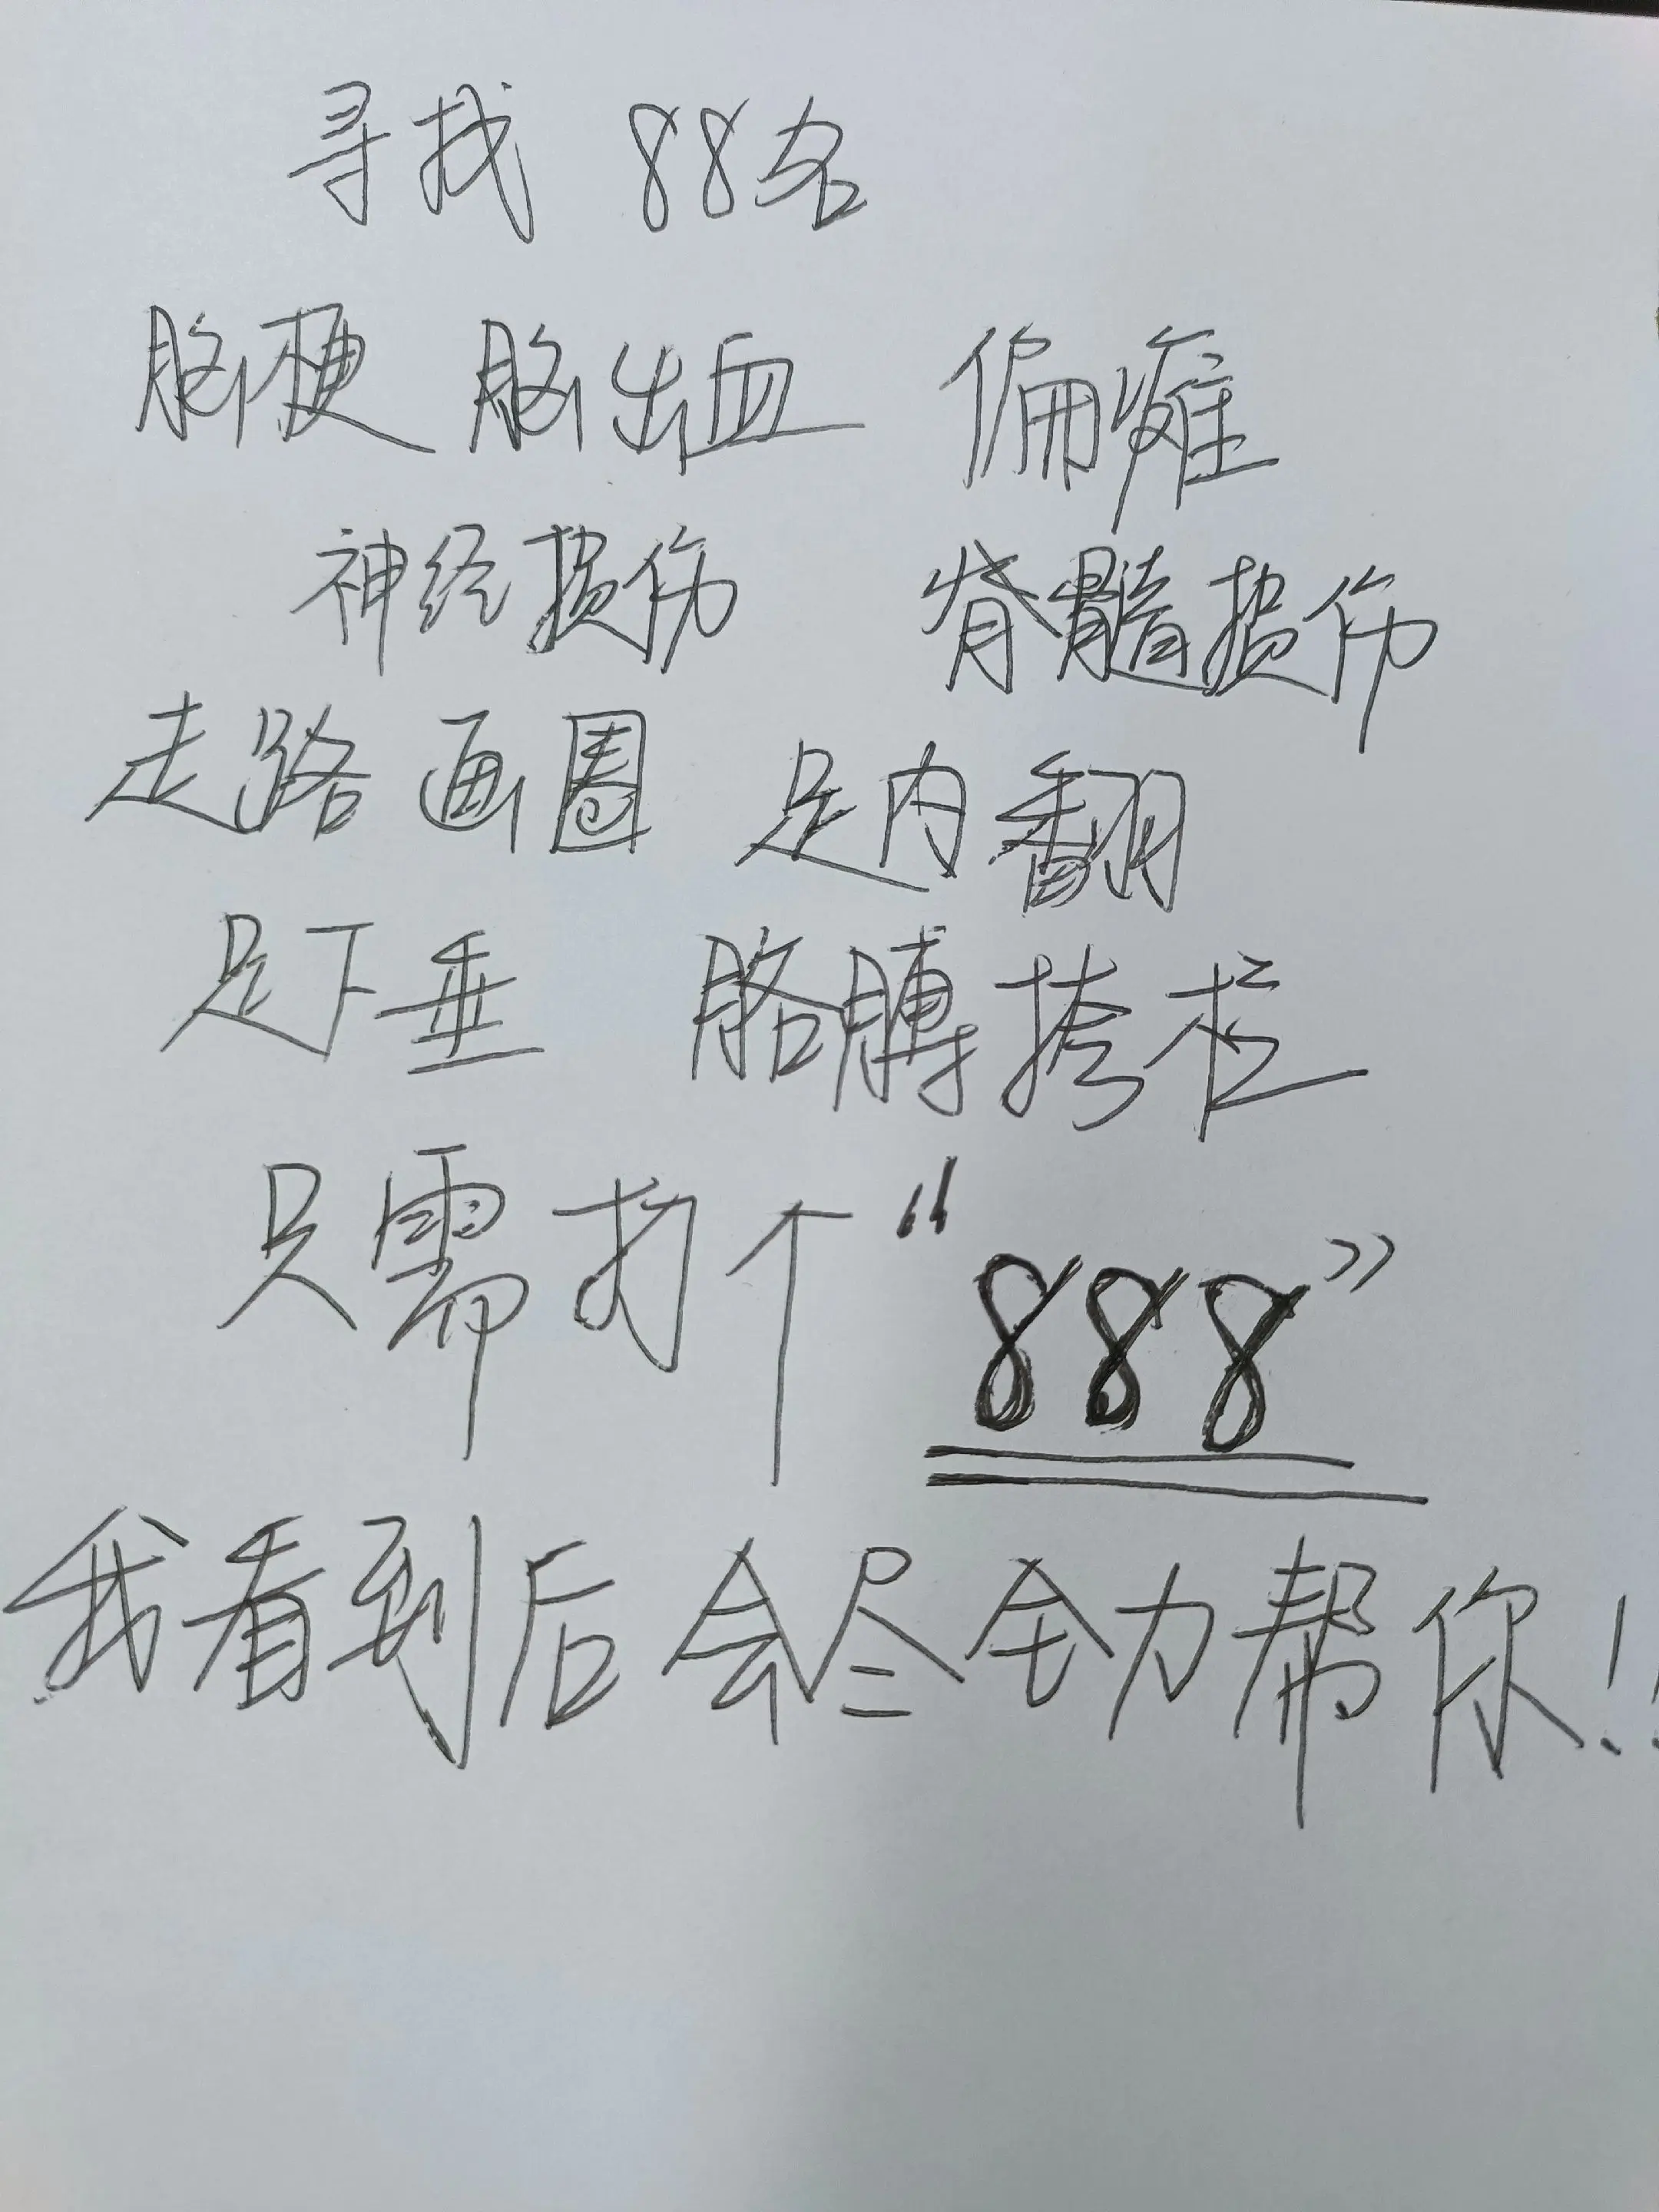 寻找 88名
脑梗 脑出血 偏瘫
神经损伤 脊髓损伤
走路画圈 足内翻
足下垂 胳膊挎栏
只需打个“888”
我看到后会尽全力帮你!!